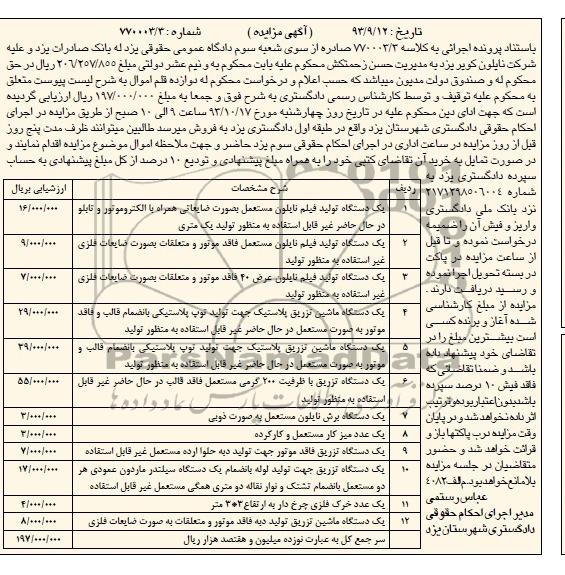 تاریخ : ۹۳/۹/۱۲ (آگهی مزایده) شماره : ۷۷۰۰۰۳/۳
باستناد پرونده اجرائی به کلاسه ۷۷۰۰۰۳/۳ صادره از سوی شعبه سوم دادگاه عمومی حقوقی یزد له بانک صادرات یزد و علیه
شرکت نایلون کویر یزد به مدیریت حسن زحمتکش محکوم علیه بابت محکوم به و نیم عشر دولتی مبلغ ۲۰۶/۲۵۷/۸۵۵ ریال در حق
محکوم له و صندوق دولت مدیون میباشد که حسب اعلام و درخواست محکوم له دوازده قلم اموال به شرح لیست پیوست متعلق
به محکوم علیه توقیف و توسط کارشناس رسمی دادگستری به شرح فوق و جمعا به مبلغ ۱۹۷/۰۰۰/۰۰۰ ریال ارزیابی گردیده
است که جهت ادای دین محکوم علیه در تاریخ روز چهارشنبه مورخ ۹۳/۱۰/۱۷ ساعت ۹ الی ۱۰ صبح از طریق مزایده در اجرای
احکام حقوقی دادگستری شهرستان یزد واقع در طبقه اول دادگستری یزد به فروش میرسد طالبین میتوانند ظرف مدت پنج روز
قبل از روز مزایده در ساعت اداری در اجرای احکام حقوقی سوم یزد حاضر و جهت ملاحظه اموال موضوع مزایده اقدام نمایند و
در صورت تمایل به خرید آن تقاضای کتبی خود را به همراه مبلغ پیشنهادی و تودیع ۱۰ درصد از کل مبلغ پیشنهادی به حساب
سپرده دادگستری یزد به
شماره ۲۱۷۱۲۹۸۵۰۶۰۰۴
نزد بانک ملی دادگستری
واریز و فیش آن را ضمیمه
درخواست نموده و تا قبل
از ساعت مزایده در پاکت
در بسته تحویل اجرا نموده
و رسید دریافت دارند.
مزایده از مبلغ کارشناسی
شده آغاز و برنده کسی
است بیشترین مبلغ را در
تقاضای خود پیشنهاد داده
باشد و ضمنا تقاضائی که
فاقد فیش ۱۰ درصد سپرده
باشد بدون اعتبار بوده و ترتیب
اثر داده نخواهد شد و در پایان
وقت مزایده درب پاکتها باز و
قرائت خواهد شد و حضور
متقاضیان در جلسه مزایده
بلامانع خواهد بود. م الف ۴۰۸۲
عباس رستمی
مدیر اجرای احکام حقوقی
دادگستری شهرستان یزد
ردیف شرح مشخصات ارزشیابی بریال
۱ یک دستگاه تولید فیلم نایلون مستعمل بصورت ضایعاتی همراه با الکتروموتور و تابلو ۱۶/۰۰۰/۰۰۰
در حال حاضر غیر قابل استفاده به منظور تولید یک متری
۲ یک دستگاه تولید فیلم نایلون مستعمل فاقد موتور و متعلقات بصورت ضایعات فلزی ۹/۰۰۰/۰۰۰
غیر استفاده به منظور تولید
۳ یک دستگاه تولید فیلم نایلون عرض ۴۰ فاقد موتور و متعلقات بصورت ضایعات فلزی ۷/۰۰۰/۰۰۰
غیر استفاده به منظور تولید
۴ یک دستگاه ماشین تزریق پلاستیک جهت تولید توپ پلاستیکی بانضمام قالب و فاقد ۲۹/۰۰۰/۰۰۰
موتور به صورت مستعمل در حال حاضر غیر قابل استفاده به منظور تولید
۵ یک دستگاه ماشین تزریق پلاستیک جهت تولید توپ پلاستیکی بانضمام قالب و ۳۹/۰۰۰/۰۰۰
موتور به صورت مستعمل در حال حاضر غیر قابل استفاده به منظور تولید
۶ یک دستگاه تزریق با ظرفیت ۲۰۰ گرمی مستعمل فاقد قالب در حال حاضر غیر قابل ۵۵/۰۰۰/۰۰۰
استفاده به منظور تولید
۷ یک دستگاه برش نایلون مستعمل به صورت ذوبی ۳/۰۰۰/۰۰۰
۸ یک عدد میز کار مستعمل و کارکرده ۳/۰۰۰/۰۰۰
۹ یک دستگاه تزریق فاقد موتور جهت تولید دبه حلوا ارده مستعمل غیر قابل استفاده ۷/۰۰۰/۰۰۰
۱۰ یک دستگاه تزریق جهت تولید لوله بانضمام یک دستگاه سیلندر ماردون عمودی هر ۱۷/۰۰۰/۰۰۰
دو مستعمل بانضمام تشتک و نوار نقاله دو متری همگی مستعمل غیر قابل استفاده
۱۱ یک عدد خرک فلزی چرخ دار به ارتفاع ۳*۳ متر ۴/۰۰۰/۰۰۰
۱۲ یک دستگاه ماشین تزریق تولید دبه فاقد موتور و متعلقات به صورت ضایعات فلزی ۸/۰۰۰/۰۰۰
سر جمع کل به عبارت نوزده میلیون و هفتصد هزار ریال ۱۹۷/۰۰۰/۰۰۰